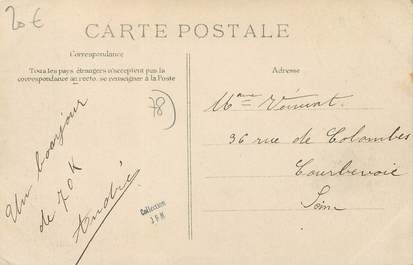 20€
CARTE POSTALE
Correspondance
Tous les pays étrangers n'acceptent pas la
correspondance au recto. se renseigner à la Poste
Adresse
78
Un bonjour
de 70K
André
Collection
J.F.M
Mme
36 rue de Colombes
Courbevoie
Seine